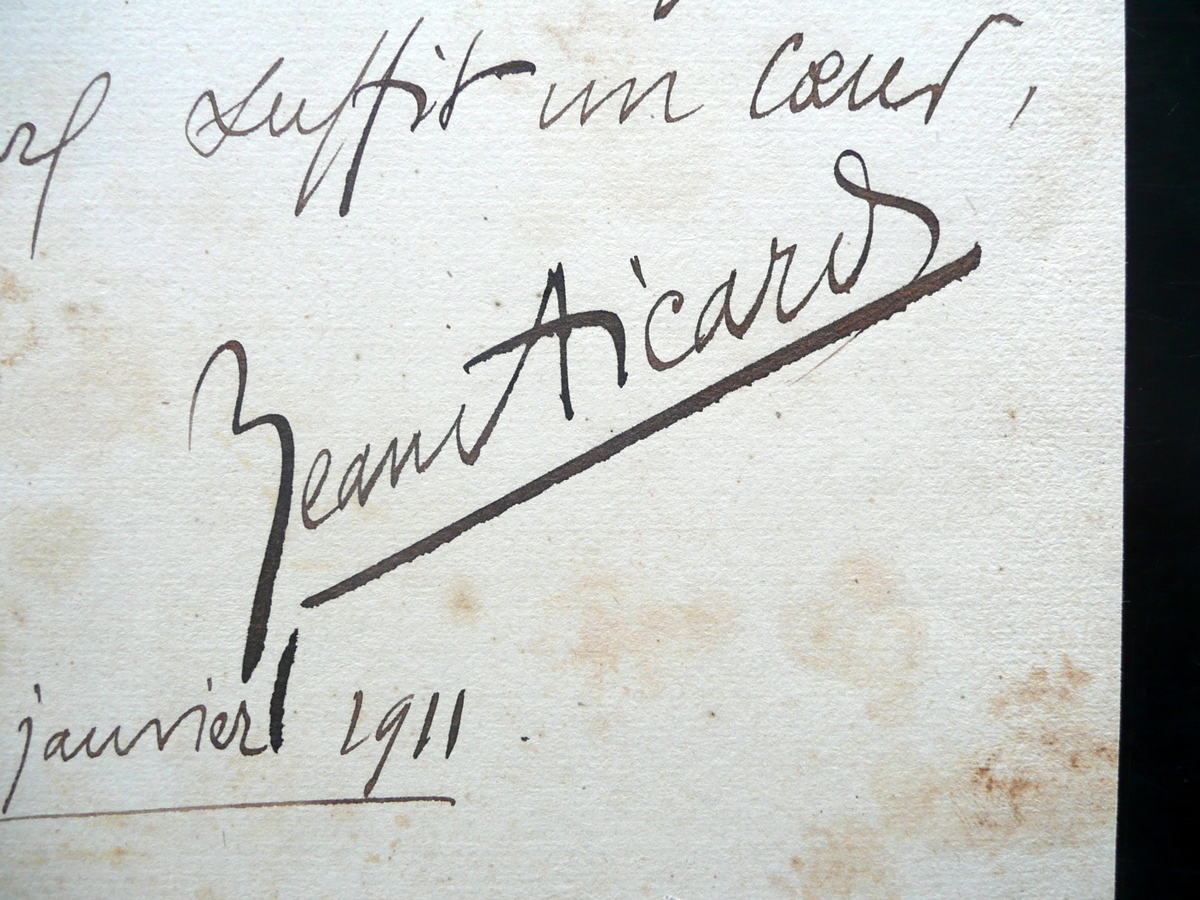 suffit un cœur,
Jean Aicard
janvier 1911